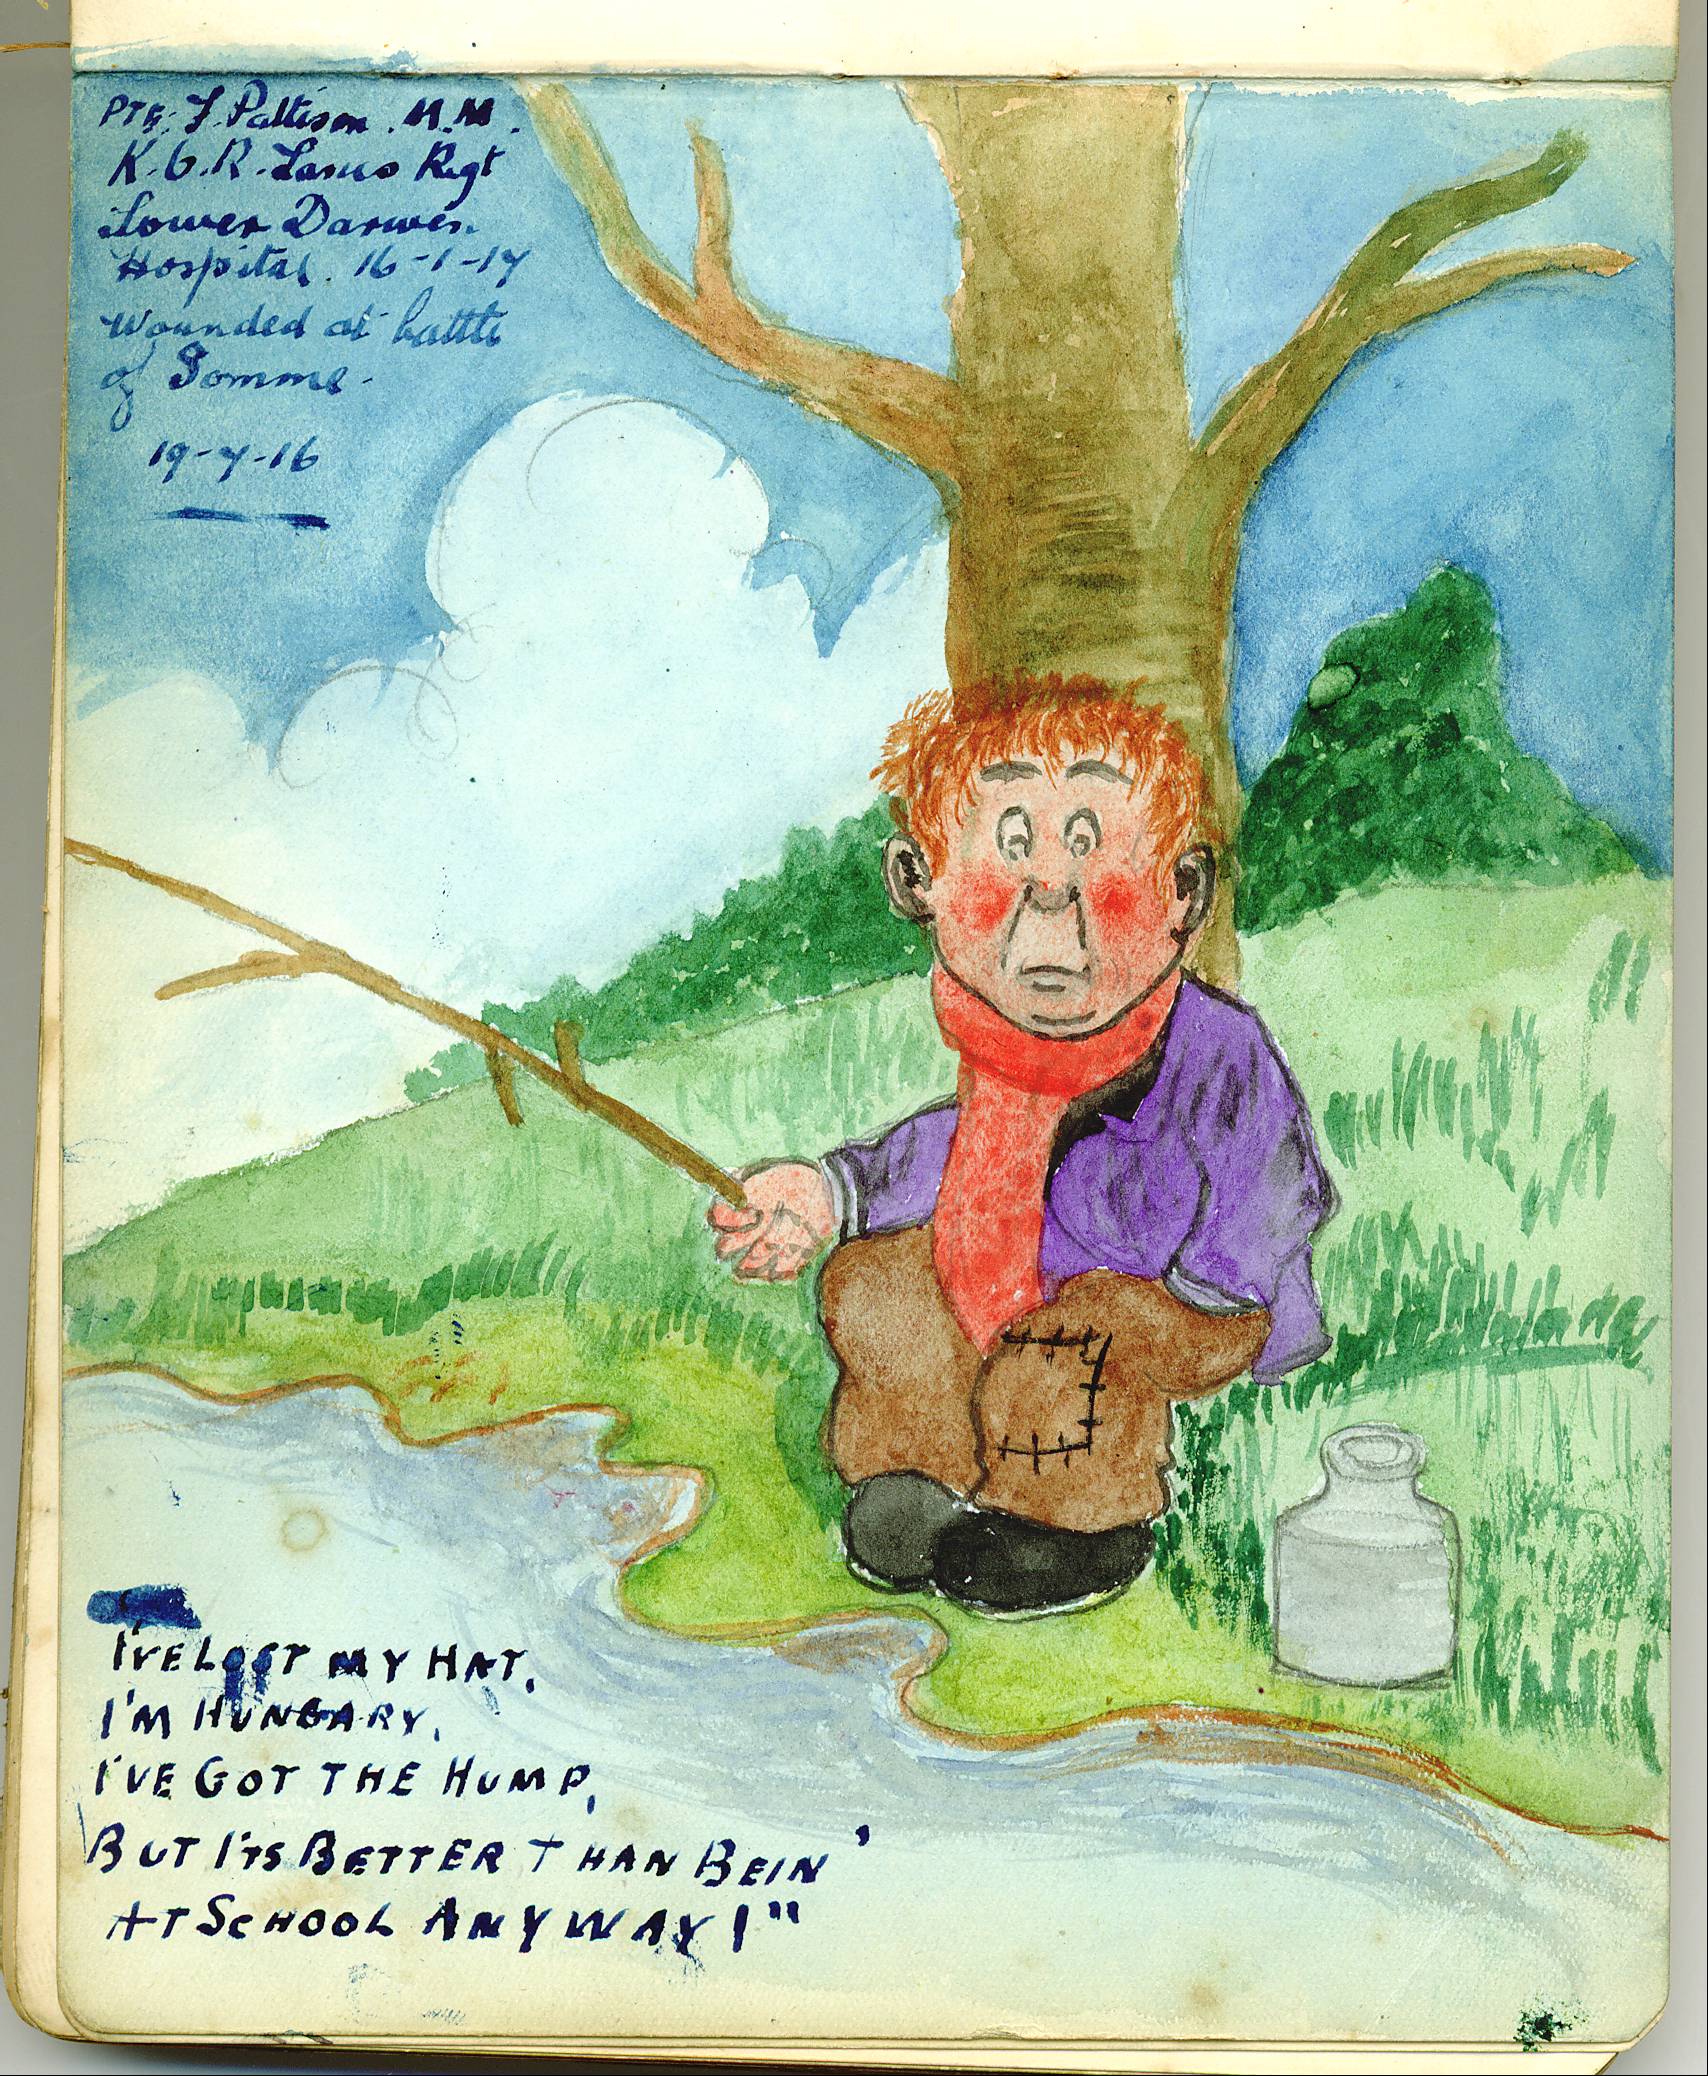 PTE. J. Pattison. M.M.
K.O.R. Lancs Regt
Lower Darwen.
Hospital. 16-1-17
Wounded at battle
of Somme.
19-7-16
I'VE LOST MY HAT,
I'M HUNGARY,
I'VE GOT THE HUMP,
BUT ITS BETTER THAN BEIN'
AT SCHOOL ANYWAY!"